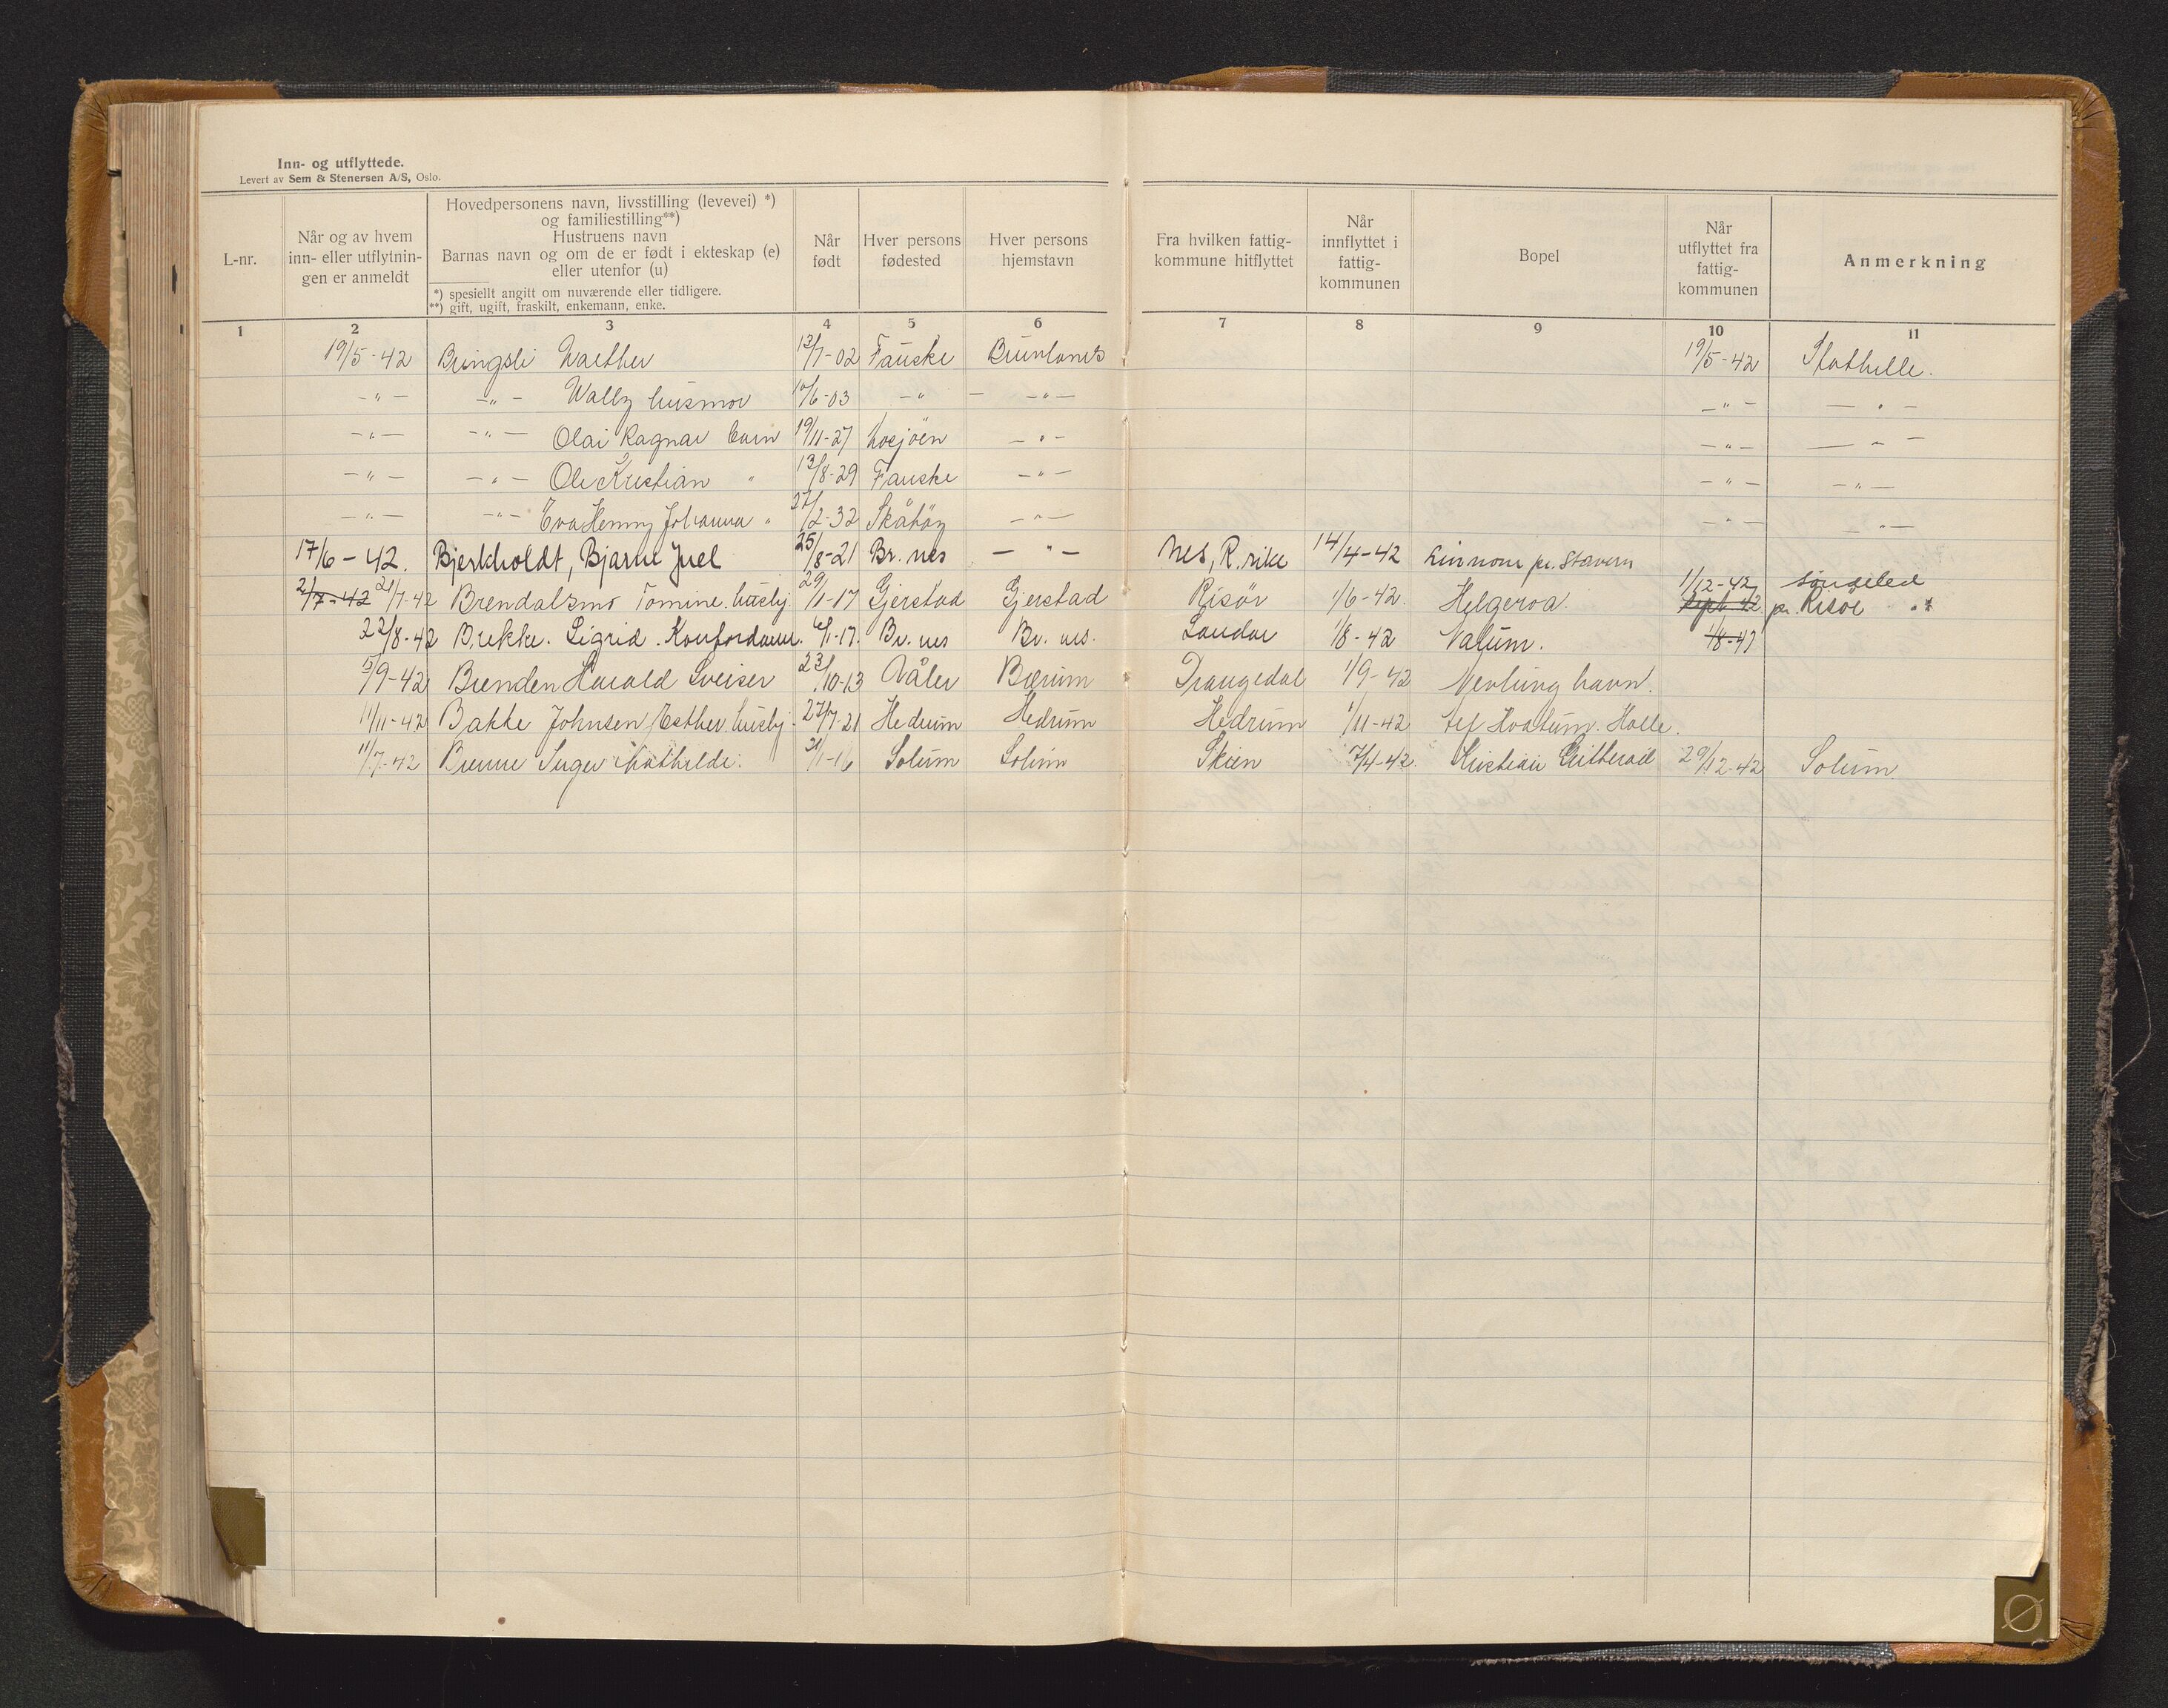 Inn- og utflyttede.
Levert av Sem & Stenersen A/S, Oslo.
L-nr.
Når og av hvem inn- eller utflytnin- gen er anmeldt
Hovedpersonens navn, livsstilling (levevei) *) og familiestilling**)
Hustruens navn
Barnas navn og om de er født i ekteskap (e) eller utenfor (u)
*) spesiellt angitt om nuværende eller tidligere.
**) gift, ugift, fraskilt, enkemann, enke.
Når født
Hver persons fødested
Hver persons hjemstavn
Fra hvilken fattig- kommune hitflyttet
Når innflyttet i fattig- kommunen
Bopel
Når utflyttet fra fattig- kommunen
Anmerkning
1 2 3 4 5 6 7 8 9 10 11
19/5-42 Bringsli Walther 13/7-02 Fauske Brunlanes 19/5-42 Stathelle.
-"- -"- Wally husmor 10/6-03 -"- -"- -"- -"-
-"- -"- Olai Ragnar barn 19/11-27 -"- -"- -"-
-"- -"- Ole Kristian " 13/8-29 Fauske -"- -"- -"-
-"- -"- Eva Henny Johanna " 27/2-32 -"- -"- "-
17/6-42. Bjerkholdt, Bjarne Juel 25/8-21 Br. nes -"- Nes, R.rike 14/4-42 Linnom pr. Stavern
2/7-42 21/7-42 Brendalsmo Tomine. hushj. 29/1-17 Gjerstad Gjerstad Risör 1/6-42. Helgeroa. 1/12-42 Sept 42 Söndeled pr. Risör
22/8-42 Brekke. Sigrid. 6/1-17. Br. nes Br. nes. Sandar 1/8-42 Valum. 1/8-47
5/9-42 Brenden Harald Sveiser 23/10-13 Våler Bærum Drangedal 1/9-42 Nevlunghavn.
11/11-42 Bakke Johnsen, Esther hushj. 27/7-21 Hedrum Hedrum Hedrum 1/11-42
11/7-42 Brenne Inger Mathilde. 31/1-16 Solum Solum Skien 7/4-42. Kristian 29/12-42 Solum
Ø